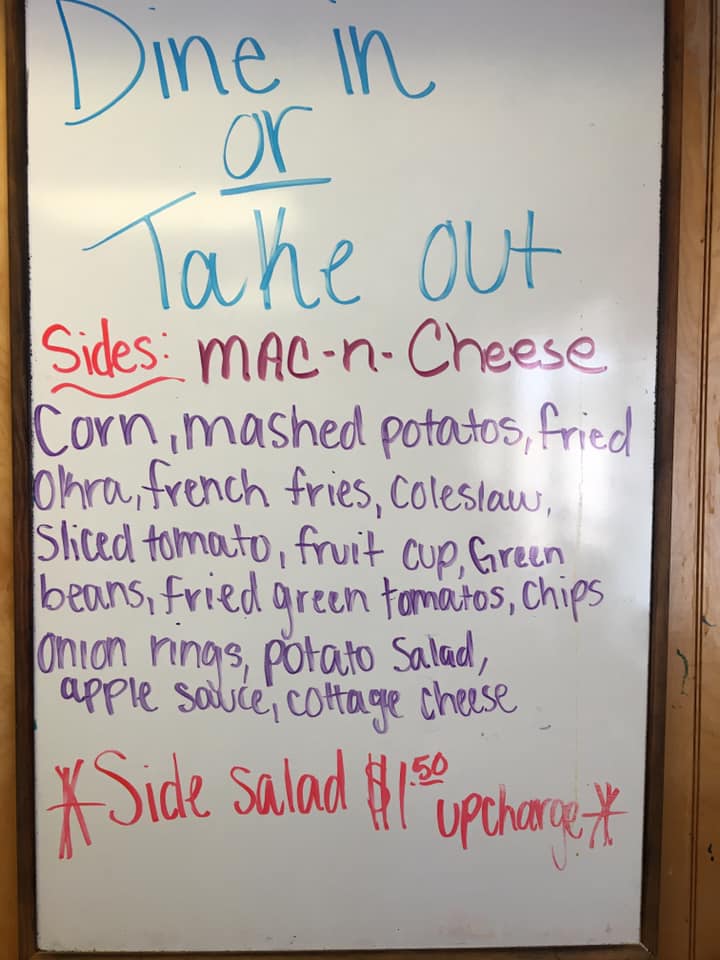 Dine in
or
Take out
Sides: MAC-n-Cheese
Corn, mashed potatos, fried
Okra, french fries, Coleslaw,
Sliced tomato, fruit cup, Green
beans, fried green tomatos, Chips
Onion rings, potato Salad,
apple sauce, cottage cheese
*Side Salad $1.50 upcharge*